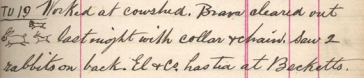 TU 19 Worked at cowshed. Brava cleared out
last night with collar & chain. Saw 2
rabbits on back. El & Co has tea at Becketts.